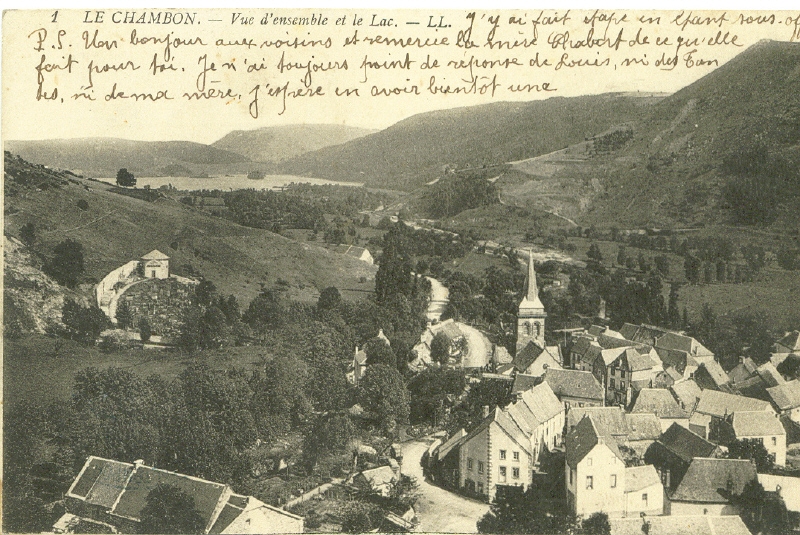 1 LE CHAMBON. — Vue d'ensemble et le Lac. — LL. J'y ai fait étape en
P.S. Un bonjour aux voisins et remercie la mère Chabert de ce qu'elle
fait pour toi. Je n'ai toujours point de réponse de Louis, ni des Tan
tes, ni de ma mère, j'espère en avoir bientôt une